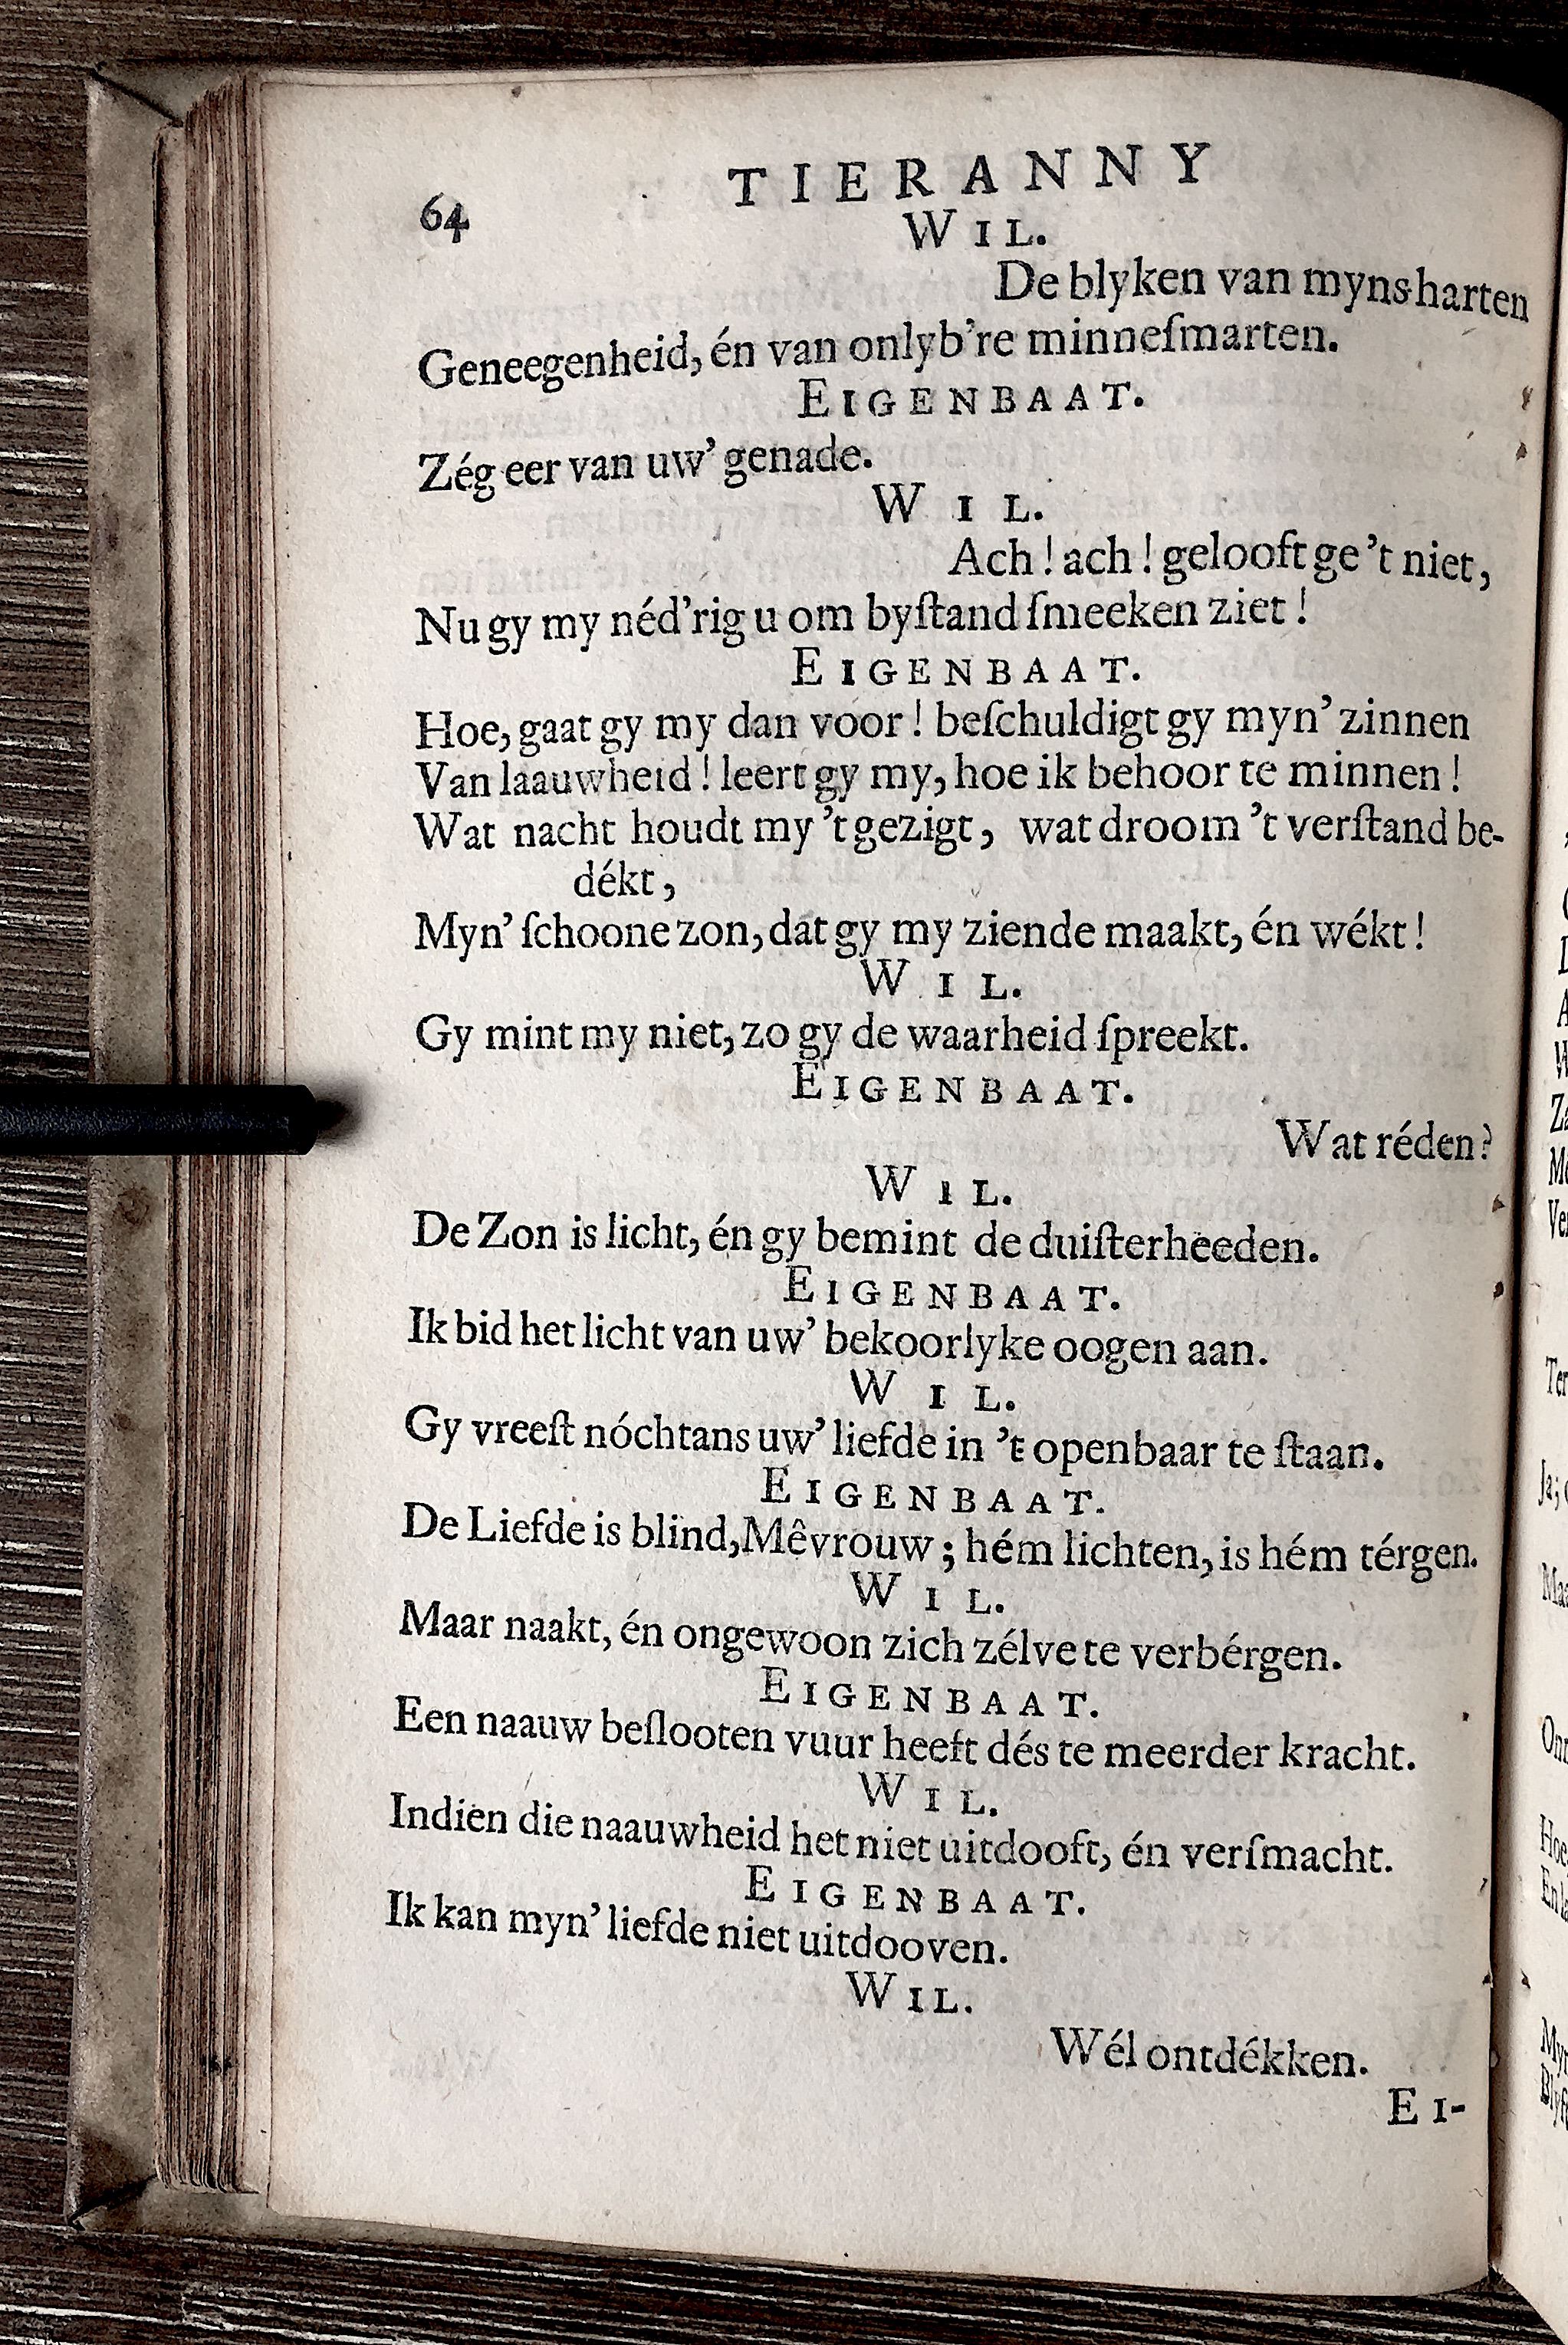 64 TIERANNY
WIL.
De blyken van myns harten
Geneegenheid, én van onlyb’re minneſmarten.
EIGENBAAT.
Zég eer van uw’ genade.
WIL.
Ach! ach! gelooft ge ’t niet,
Nu gy my néd’rig u om byſtand ſmeeken ziet!
EIGENBAAT.
Hoe, gaat gy my dan voor! beſchuldigt gy myn’ zinnen
Van laauwheid! leert gy my, hoe ik behoor te minnen!
Wat nacht houdt my ’t gezigt, wat droom ’t verſtand be-
dékt,
Myn’ ſchoone zon, dat gy my ziende maakt, én wékt!
WIL.
Gy mint my niet, zo gy de waarheid ſpreekt.
EIGENBAAT.
Wat réden?
WIL.
De Zon is licht, én gy bemint de duiſterheeden.
EIGENBAAT.
Ik bid het licht van uw’ bekoorlyke oogen aan.
WIL.
Gy vreeſt nóchtans uw’ liefde in ’t openbaar te ſtaan.
EIGENBAAT.
De Liefde is blind, Mêvrouw; hém lichten, is hém térgen.
WIL.
Maar naakt, én ongewoon zich zélve te verbérgen.
EIGENBAAT.
Een naauw beſlooten vuur heeft dés te meerder kracht.
WIL.
Indien die naauwheid het niet uitdooft, én verſmacht.
EIGENBAAT.
Ik kan myn’ liefde niet uitdooven.
WIL.
Wél ontdékken.
EI-